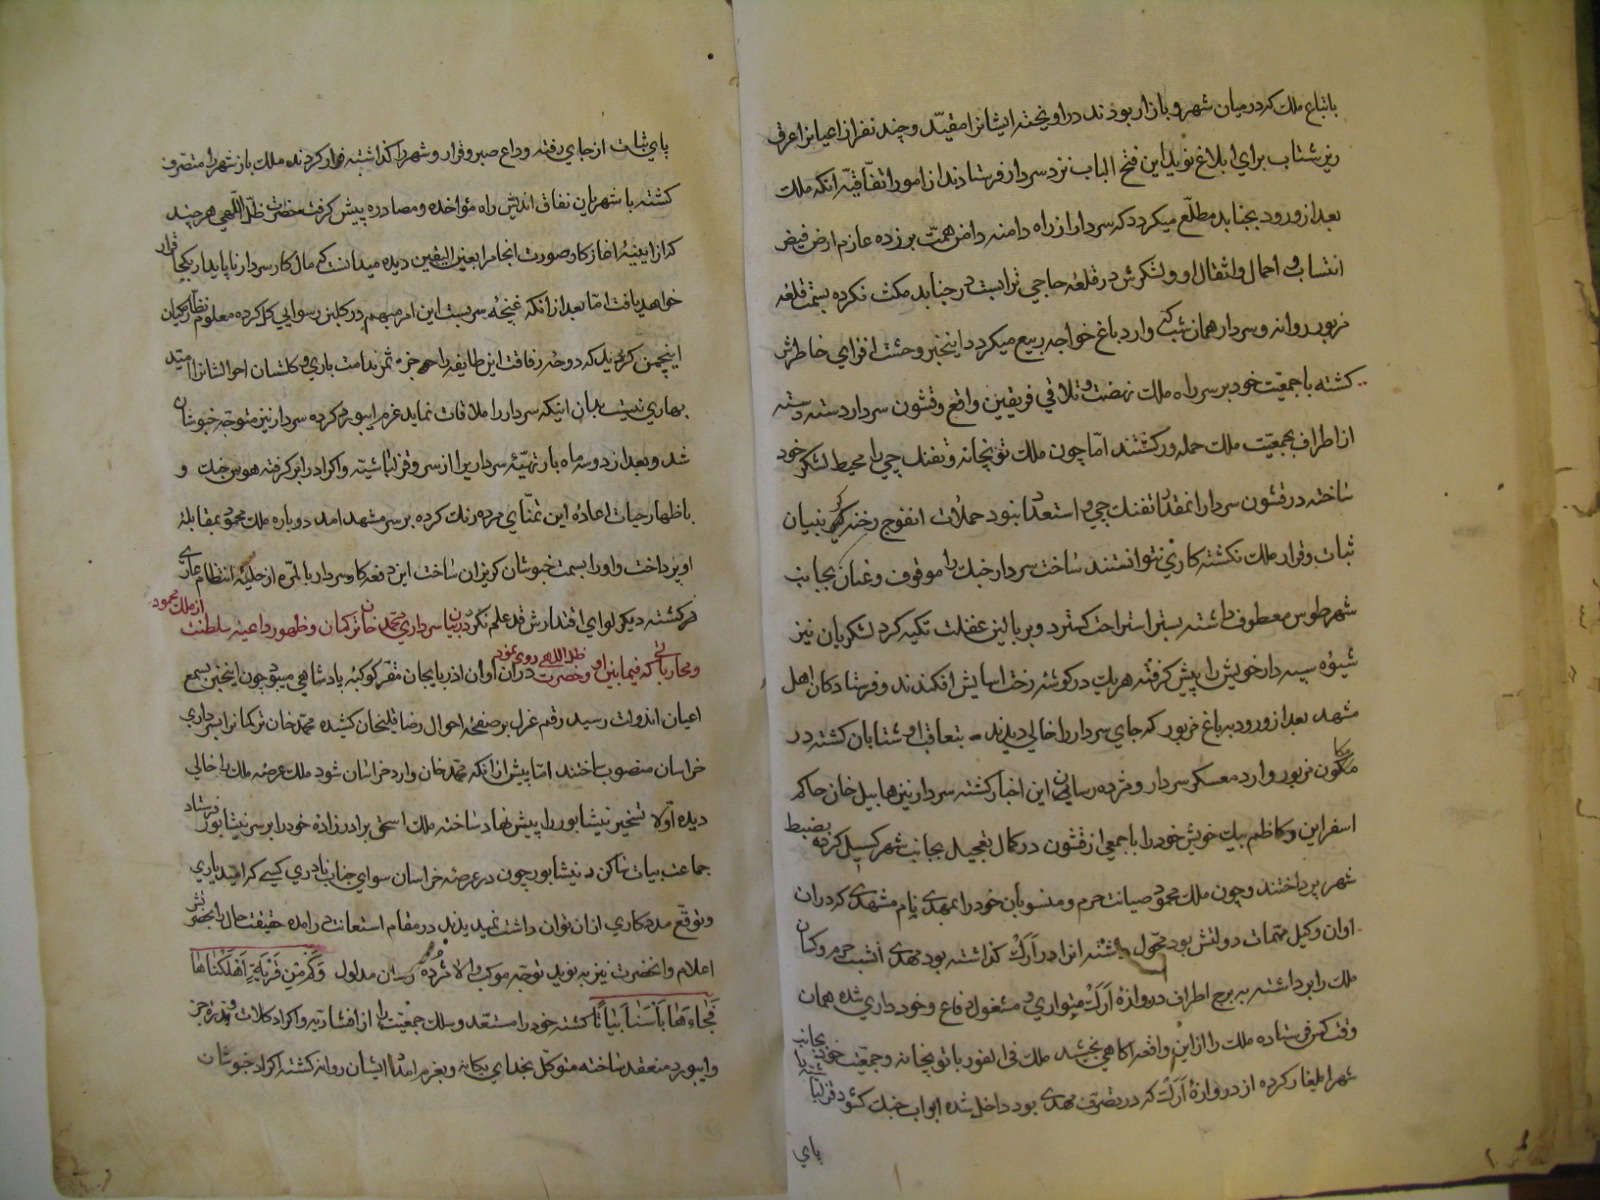 باتباع ملک که در میان شهر و بازار بودند در اویخته ایشانرا مقید و چند نفر از اعیانرا عرق
ریز شتاب برای ابلاغ نوید این فتح الباب نزد سردار فرستادند از امور اتفاقیه انکه ملک
بعد از ورود بجنابد مطلع میکردد که سردار از راه دامنه دامن همت بر زده عازم ارض فیض
انتساب و احمال و اثقال او و لشکرش در قلعه حاجی تراب است در جنابد مکث نکرده بسمت قلعه
مزبور روانه و سردار همان شب که وارد باغ خواجه ربیع میکردد اینخبر وحشت افزای خاطرش
کشته با جمعیت خود بر سر راه ملک نهضت و تلاقی فریقین واقع و قشون سردار دسته دسته
از اطراف بجمعیت ملک حمله ور کشتند اما چون ملک توپخانه و تفنک چی را محیط لشکر خود
ساخته در قشون سردار انقدر تفنک چی و استعداد نبود حملات انفوج رخنه کر بنیان
ثبات و قرار ملک نکشته کاری نتوانستند ساخت سردار جنک را موقوف و عنان بجانب
شهر طوس معطوف داشته بستر استراحت کسترد و بر بالین غفلت تکیه کرد لشکریان نیز
شیوه سپه دار خویش را پیش کرفته هر یک در کوشه رخت اسایش افکندند و فرستادکان اهل
مشهد بعد از ورود به باغ مزبور که جای سردار را خالی دیدند بتعاقب او شتابان کشته در
مکان مزبور وارد معسکر سردار و مژده رسان این اخبار کشته سردار نیز هابیل خان حاکم
اسفراین و کاظم بیک خویش خود را با جمعی از قشون در کمال تعجیل بجانب شهر کسیل کرده بضبط
شهر پرداختند و چون ملک محمود صیانت حرم و منسوبان خود را بمهدی نام مشهدی که در ان
اوان وکیل مهمات دولتش بود محول داشته انرا در ارک کذاشته بود مهدی انشب حرم و کسان
ملک را برداشته به برج اطراف دروازه ارک متواری و مشغول دفاع و خود داری شده همان
وقت کس فرستاده ملک را از این واقعه اکاهی بخشید ملک فی الفور با توپخانه و جمعیت خود بجانب
شهر ایلغار کرده از دروازهٔ ارک که در تصرف مهدی بود داخل شده ابواب جنک کشود قزلباشیه را
پای
پای ثبات از جای رفته وداع صبر و قرار و شهر را کذاشته فرار کردند ملک باز شهر را متصرف
کشته با شهریان نفاق اندیش راه مؤاخذه و مصادره پیش کرفت حضرت ظل اللهی هر چند
که از ایینهٔ اغاز کار صورت انجام را بعین الیقین دیده میدانست که مال کار سردار ناپایدار بکجا قرار
خواهد یافت اما بعد از انکه غنچهٔ سر بست این امر مبهم در کلبن رسوایی کل کرده معلوم نظارکیان
اینچمن کردید که دوحهٔ رفاقت این طایفه را جز ثمر ندامت باری و کلستان احوالشانرا امید
بهاری نیست بدان اینکه سردار را ملاقات نماید عزم ابیورد کرده سردار نیز متوجه خبوشان
شد و بعد از دو سه ماه باز تهیهٔ سرداریرا از سر و قزلباشیه و اکراد را بر کرفته هوس جنک و
باظهار حیات اعادهٔ این تمنای مرده رنک کرده بر سر مشهد امد دوباره ملک محمود بمقابلهٔ
او پرداخت و او را بسمت خبوشان کریزان ساخت این دفعه کار سردار بالمره از حلیهٔ انتظام عاری
کشته دیکر لوای اقتدارش قد علم نکرد در بیان سرداری محمد خان ترکمان و ظهور داعیه سلطنت از ملک محمود
و محارباتی که فیما بین او و حضرت ظل اللهی روی نمود در ان اوان اذربایجان مقر کوکبه پادشاهی میبود چون اینخبر بسمع
اعیان اندولت رسید رقم عزل بر صفحه احوال رضا قلیخان کشیده محمد خان ترکمانرا بسرداری
خراسان منصوب ساختند اما پیش از انکه محمد خان وارد خراسان شود ملک عرصه ملک را خالی
دیده اولا تسخیر نیشابور را پیش نهاد ساخته ملک اسحق برادر زاده خود را بر سر نیشابور فرستاد
جماعت بیات ساکن نیشابور چون در عرصه خراسان سوای جناب نادری کسی که امید یاری
و توقع مددکاری از ان توان داشت نمیدیدند در مقام استعانت در امده حقیقت حال را بحضرتش
اعلام و انحضرت نیز به نوید توجه موکب والا مژده رسان مدلول وَکَم مِن قَریَةٍ اَهلَکناها
فَجاءَها بَاسُنا بَیاتًا کشته خود را مستعد و سلک جمعیت را از افشاریه و اکراد کلات و دره جز
و ابیورد منعقد ساخته متوکل بخدای یکانه و بعزم امداد ایشان روانه کشته اکراد خبوشان